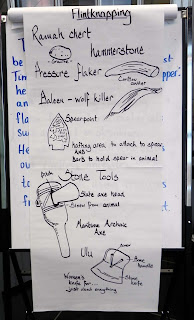 Flintknapping
Ramah chert
hammerstone
granite
Pressure flaker
Caribou
antler
Baleen - wolf killer
Spearpoint
hafting area to attach to spear
Barb to hold spear in animal
Stone Tools
Slate axe head
Sinew from animal
Maritime Archaic
Axe
Ulu
Bone
handle
Stone
knife
Woman's
knife for
just about everything